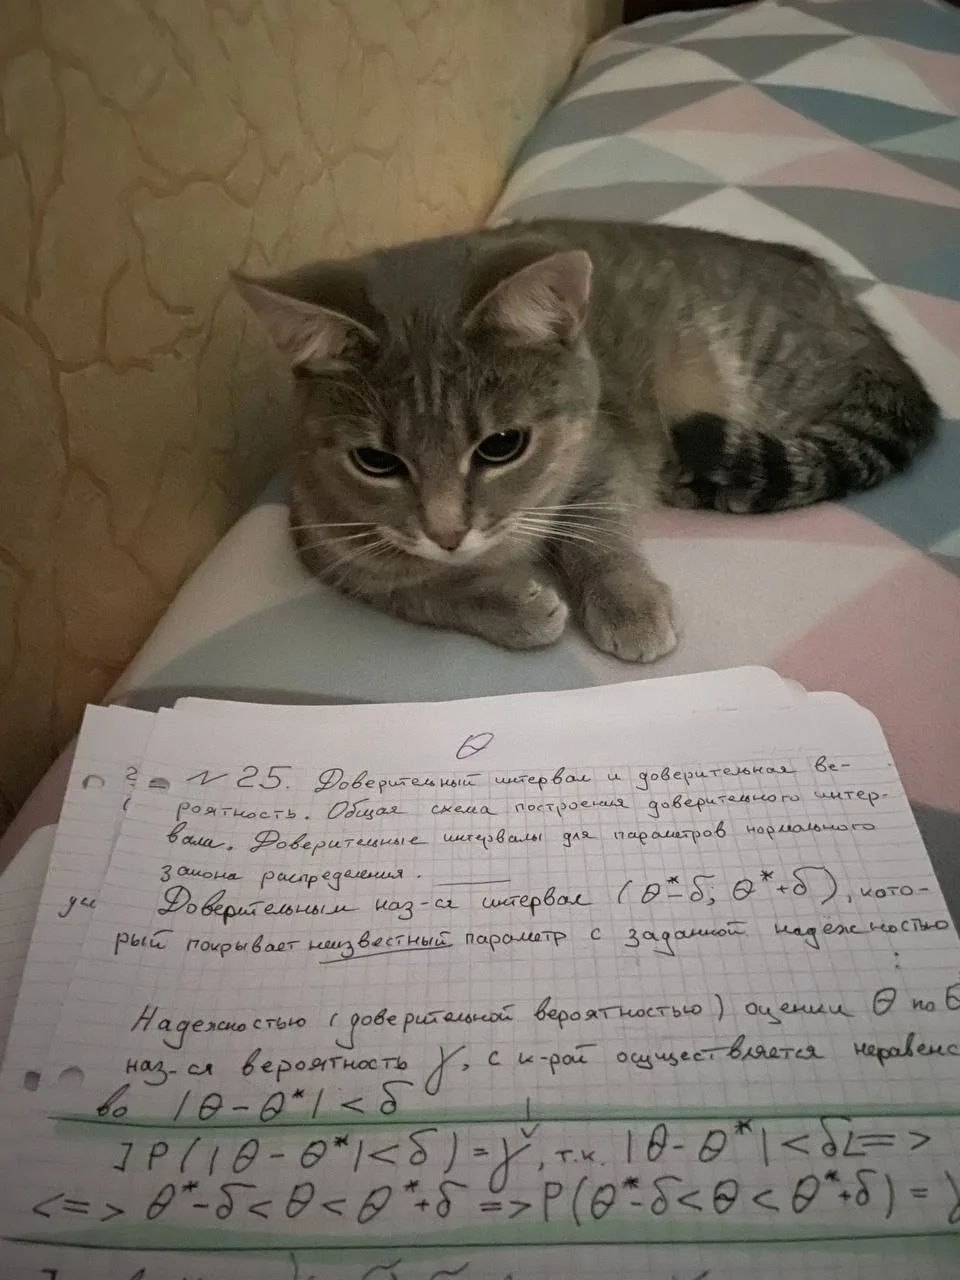 θ
№ 25. Доверительный интервал и доверительная ве-
роятность. Общая схема построения доверительного интер-
вала. Доверительные интервалы для параметров нормального
закона распределения.
Доверительным наз-ся интервал (θ*-δ; θ*+δ), кото-
рый покрывает неизвестный параметр с заданной надёжностью
Надежностью (доверительной вероятностью) оценки θ по θ
наз-ся вероятность γ, с к-рой осуществляется неравенс
во |θ - θ*| < δ
] P(|θ - θ*| < δ) = γ, т.к. |θ - θ*| < δ <=>
<=> θ*-δ < θ < θ*+δ => P(θ*-δ < θ < θ*+δ) = γ